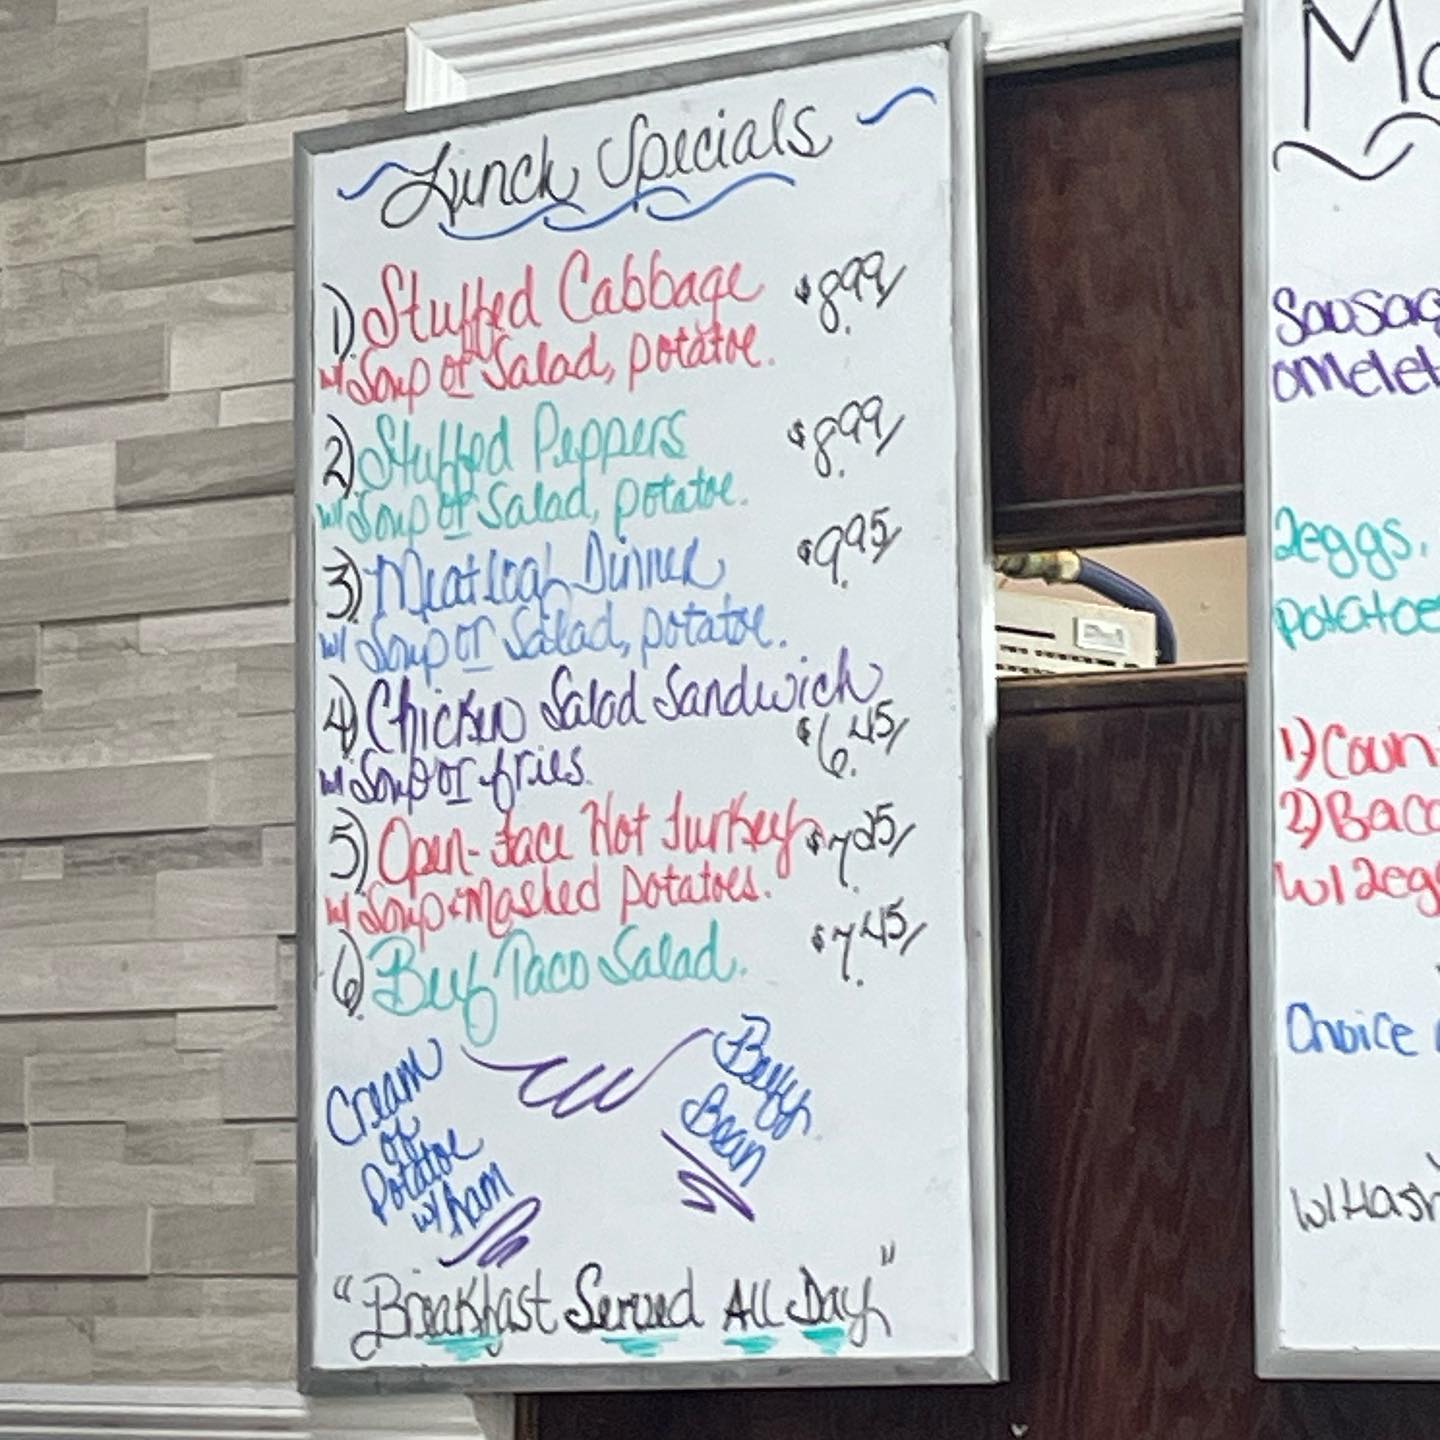 Lunch Specials
1) Stuffed Cabbage $8.99/
w/ Soup or Salad, potatoe.
2) Stuffed Peppers $8.99/
w/ Soup or Salad, potatoe.
3) Meatloaf Dinner $9.95/
w/ Soup or Salad, potatoe.
4) Chicken Salad Sandwich
$6.45/
w/ Soup or fries.
5) Open-Face Hot Turkey $7.25/
w/ Soup & Mashed potatoes.
6) Beef Taco Salad. $7.45/
Cream
of
Potatoe
w/ Ham
Beefy
Bean
"Breakfast Served All Day"
Mo
Sausag
omelet
2eggs,
potatoe
1) Coun
2) Baco
w/ 2egg
Choice
w/ Hash